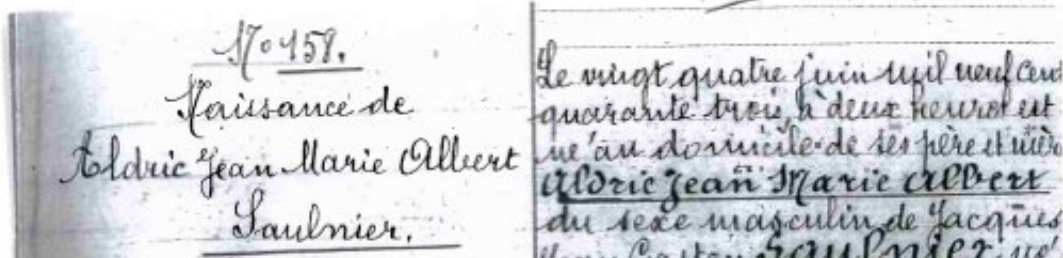 N° 158.
Naissance de
Aldric Jean Marie Albert
Saulnier.
Le vingt quatre juin mil neuf cent
quarante trois, à deux heures est
né au domicile de ses père et mère
Aldric Jean Marie Albert
du sexe masculin, de Jacques
Gaston Saulnier, né